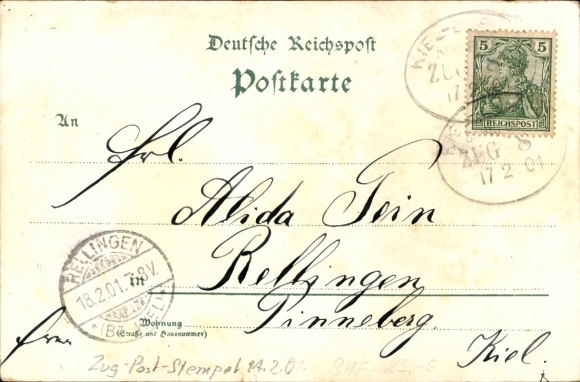 Deutsche Reichspost
Postkarte
KIEL-
ZUG
17 2
5 5
REICHSPOST
ZUG 8
17 2 01
An
Frl.
Alida Tein
Rellingen
in
Pinneberg.
RELLINGEN
18.2.01. 7-8V.
Wohnung
(Straße und Hausnummer)
Kiel.
Zug-Post-Stempel